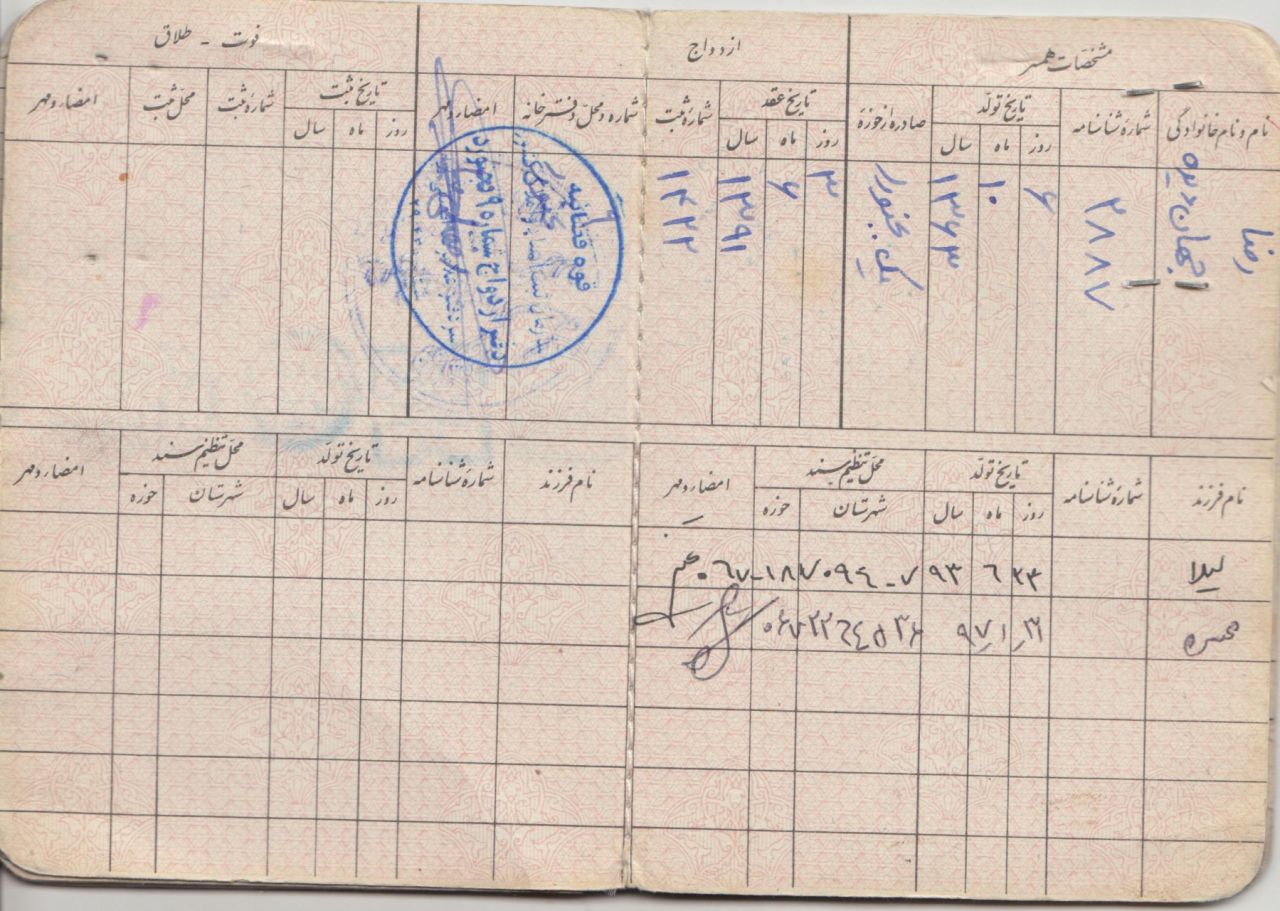 مشخصات همسر
ازدواج
فوت - طلاق
نام و نام خانوادگی
شمارهٔ شناسنامه
تاریخ تولد
روز ماه سال
صادره از حوزهٔ
تاریخ عقد
روز ماه سال
شمارهٔ ثبت
شماره و محل دفترخانه
امضاء و مهر
تاریخ ثبت
روز ماه سال
شمارهٔ ثبت
محل ثبت
امضاء و مهر
رضا جهان دیده
۲۸۸۷
۶ ۱۰ ۱۳۶۳
یک بجنورد
۳ ۶ ۱۳۹۱
۱۴۲۲
قوه قضائیه
دفتر ازدواج شماره ۹ بجنورد
نام فرزند
شمارهٔ شناسنامه
تاریخ تولد
روز ماه سال
محل تنظیم سند
شهرستان حوزه
امضاء و مهر
نام فرزند
شمارهٔ شناسنامه
تاریخ تولد
روز ماه سال
محل تنظیم سند
شهرستان حوزه
امضاء و مهر
لیلا ۲۳ ۶ ۹۳ ۰۶۷-۱۸۷۰۹۴-۷
۹۷٫۱٫۳۱ ۰۶۷۲۲۶۴۵۳۶